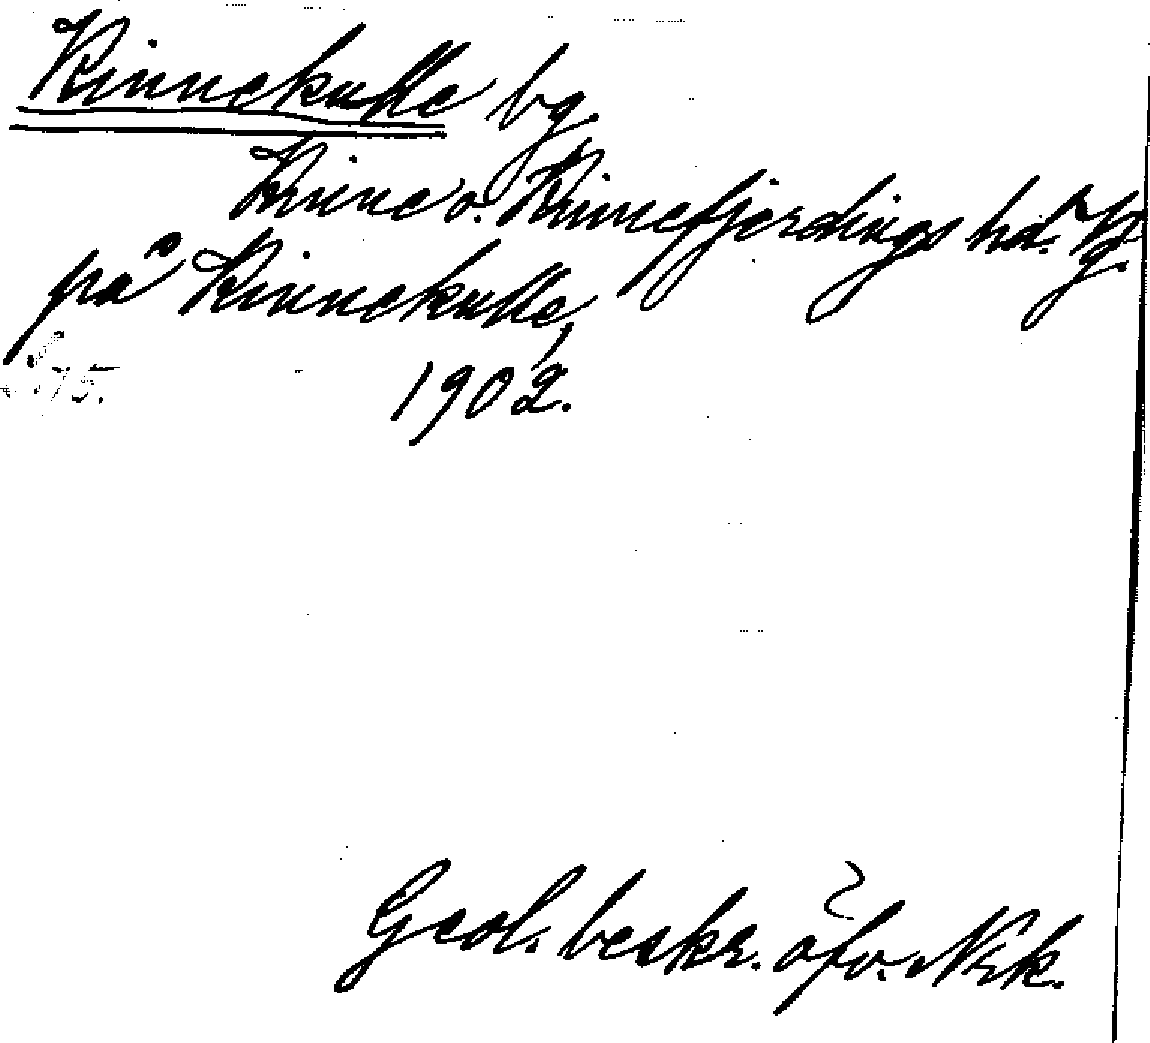 Kinnekulle bg.
Kinne o. Kinnefjerdings hdr Vg.
på Kinnekulle,
1902.
Geol. beskr. öfv. Nrk.